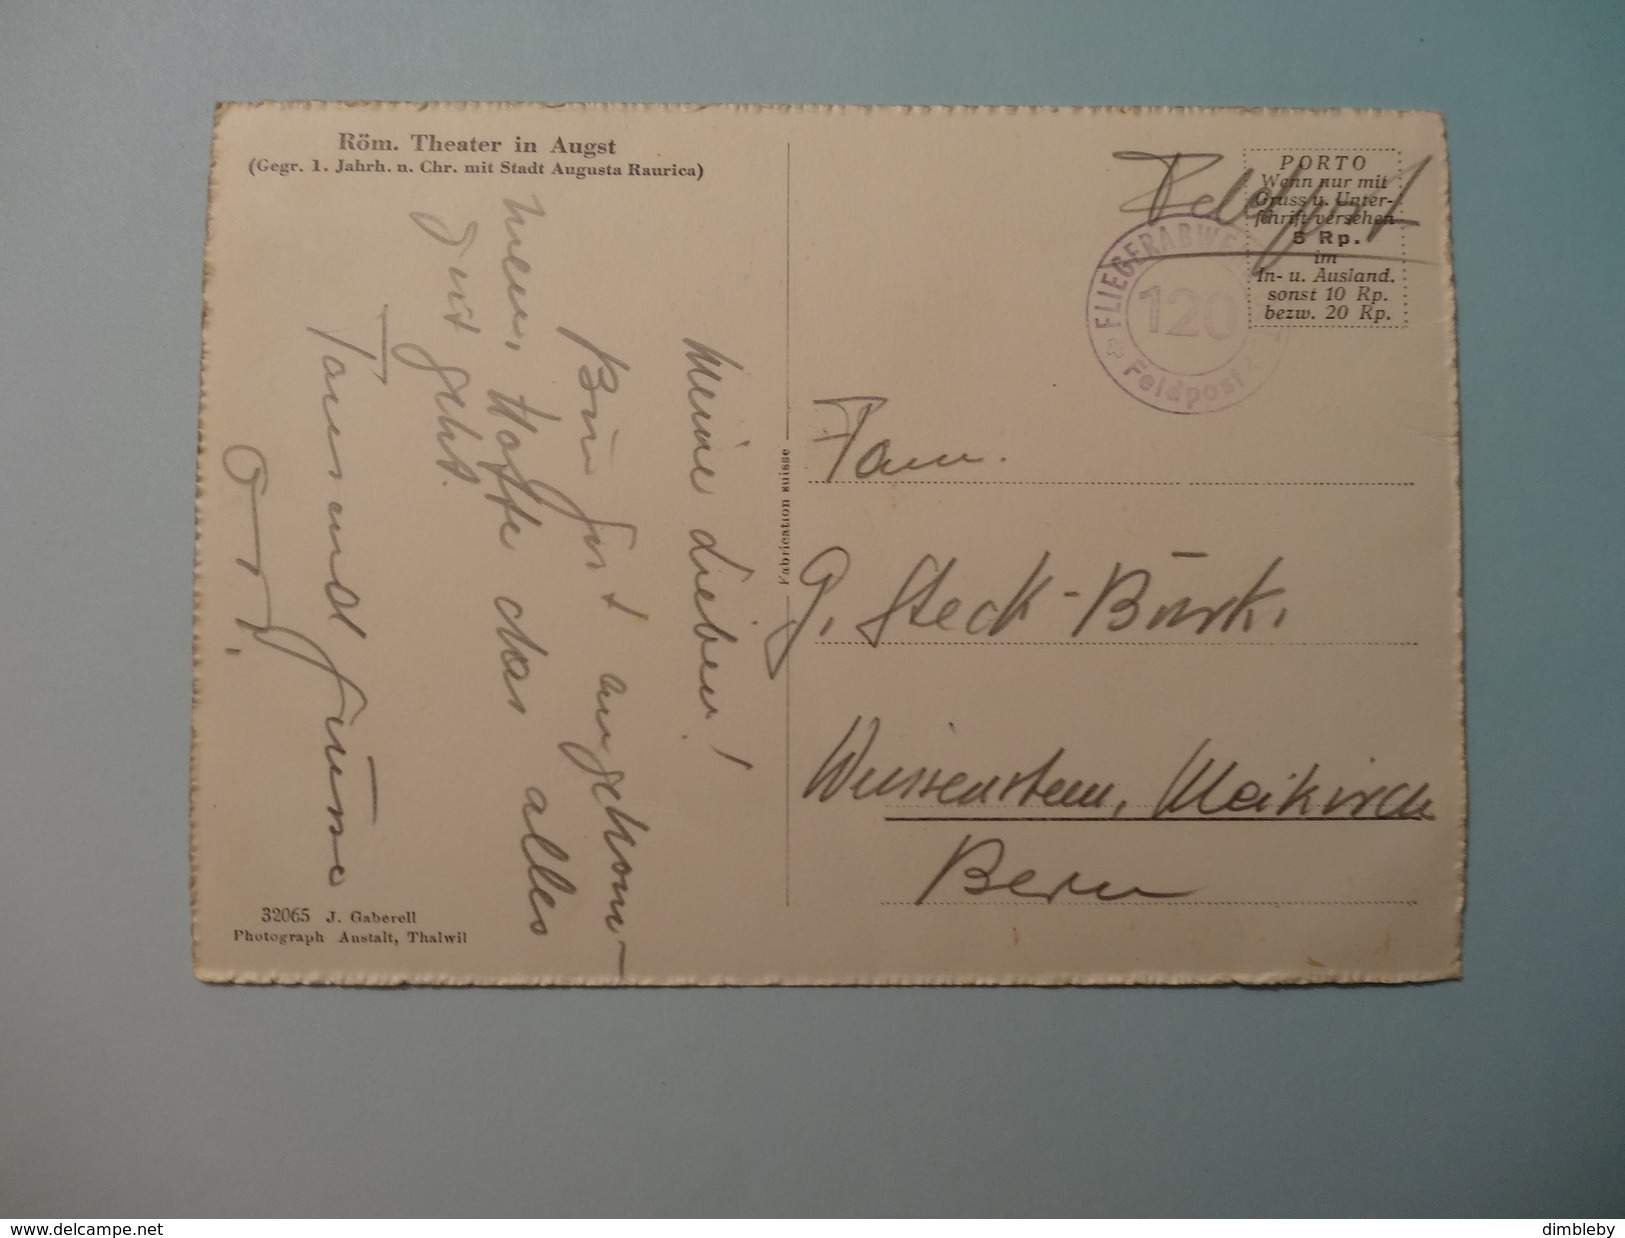 Röm. Theater in Augst
(Gegr. 1. Jahrh. n. Chr. mit Stadt Augusta Raurica)
Meine Lieben!
Bin gut angekom-
men. Hoffe das alles
gut geht.
Tausend Grüsse
32065 J. Gaberell
Photograph Anstalt, Thalwil
Fabrication suisse
Feldpost
PORTO
Wenn nur mit
Gruss u. Unter-
schrift versehen
5 Rp.
im
In- u. Ausland.
sonst 10 Rp.
bezw. 20 Rp.
FLIEGERABWE
120
Feldpost
Fam.
G. Steck-Bürki
Weissenstein, Meikirch
Bern
delcampe.net
dimbleby